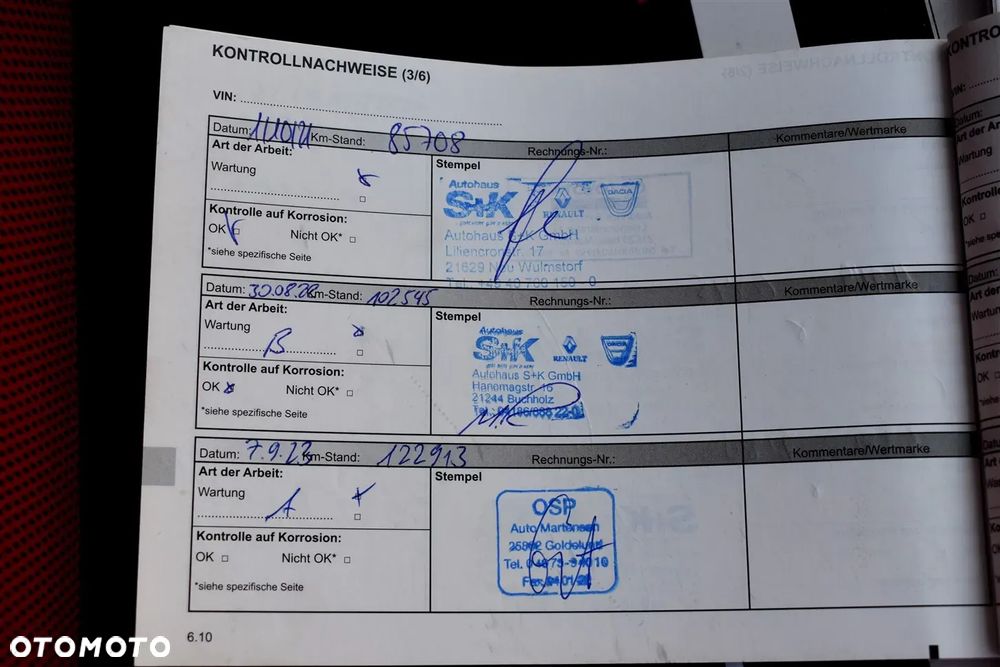 KONTROLLNACHWEISE (3/6)
VIN:
Datum: Km-Stand: 85708 Rechnungs-Nr.: Kommentare/Wertmarke
Art der Arbeit:
Wartung
Stempel
Autohaus
S+K
RENAULT
DACIA
Autohaus S+K GmbH
Liliencronstr. 17
21629 Neu Wulmstorf
Kontrolle auf Korrosion:
OK Nicht OK*
*siehe spezifische Seite
Datum: 30.08.22 Km-Stand: 102545 Rechnungs-Nr.: Kommentare/Wertmarke
Art der Arbeit:
Wartung
B
Stempel
Autohaus
S+K
RENAULT
DACIA
Autohaus S+K GmbH
Hanomagstr. 16
21244 Buchholz
Kontrolle auf Korrosion:
OK Nicht OK*
*siehe spezifische Seite
Datum: 7.9.23 Km-Stand: 122913 Rechnungs-Nr.: Kommentare/Wertmarke
Art der Arbeit:
Wartung
A
Stempel
OSP
Auto Martensen
Kontrolle auf Korrosion:
OK Nicht OK*
*siehe spezifische Seite
6.10
OTOMOTO